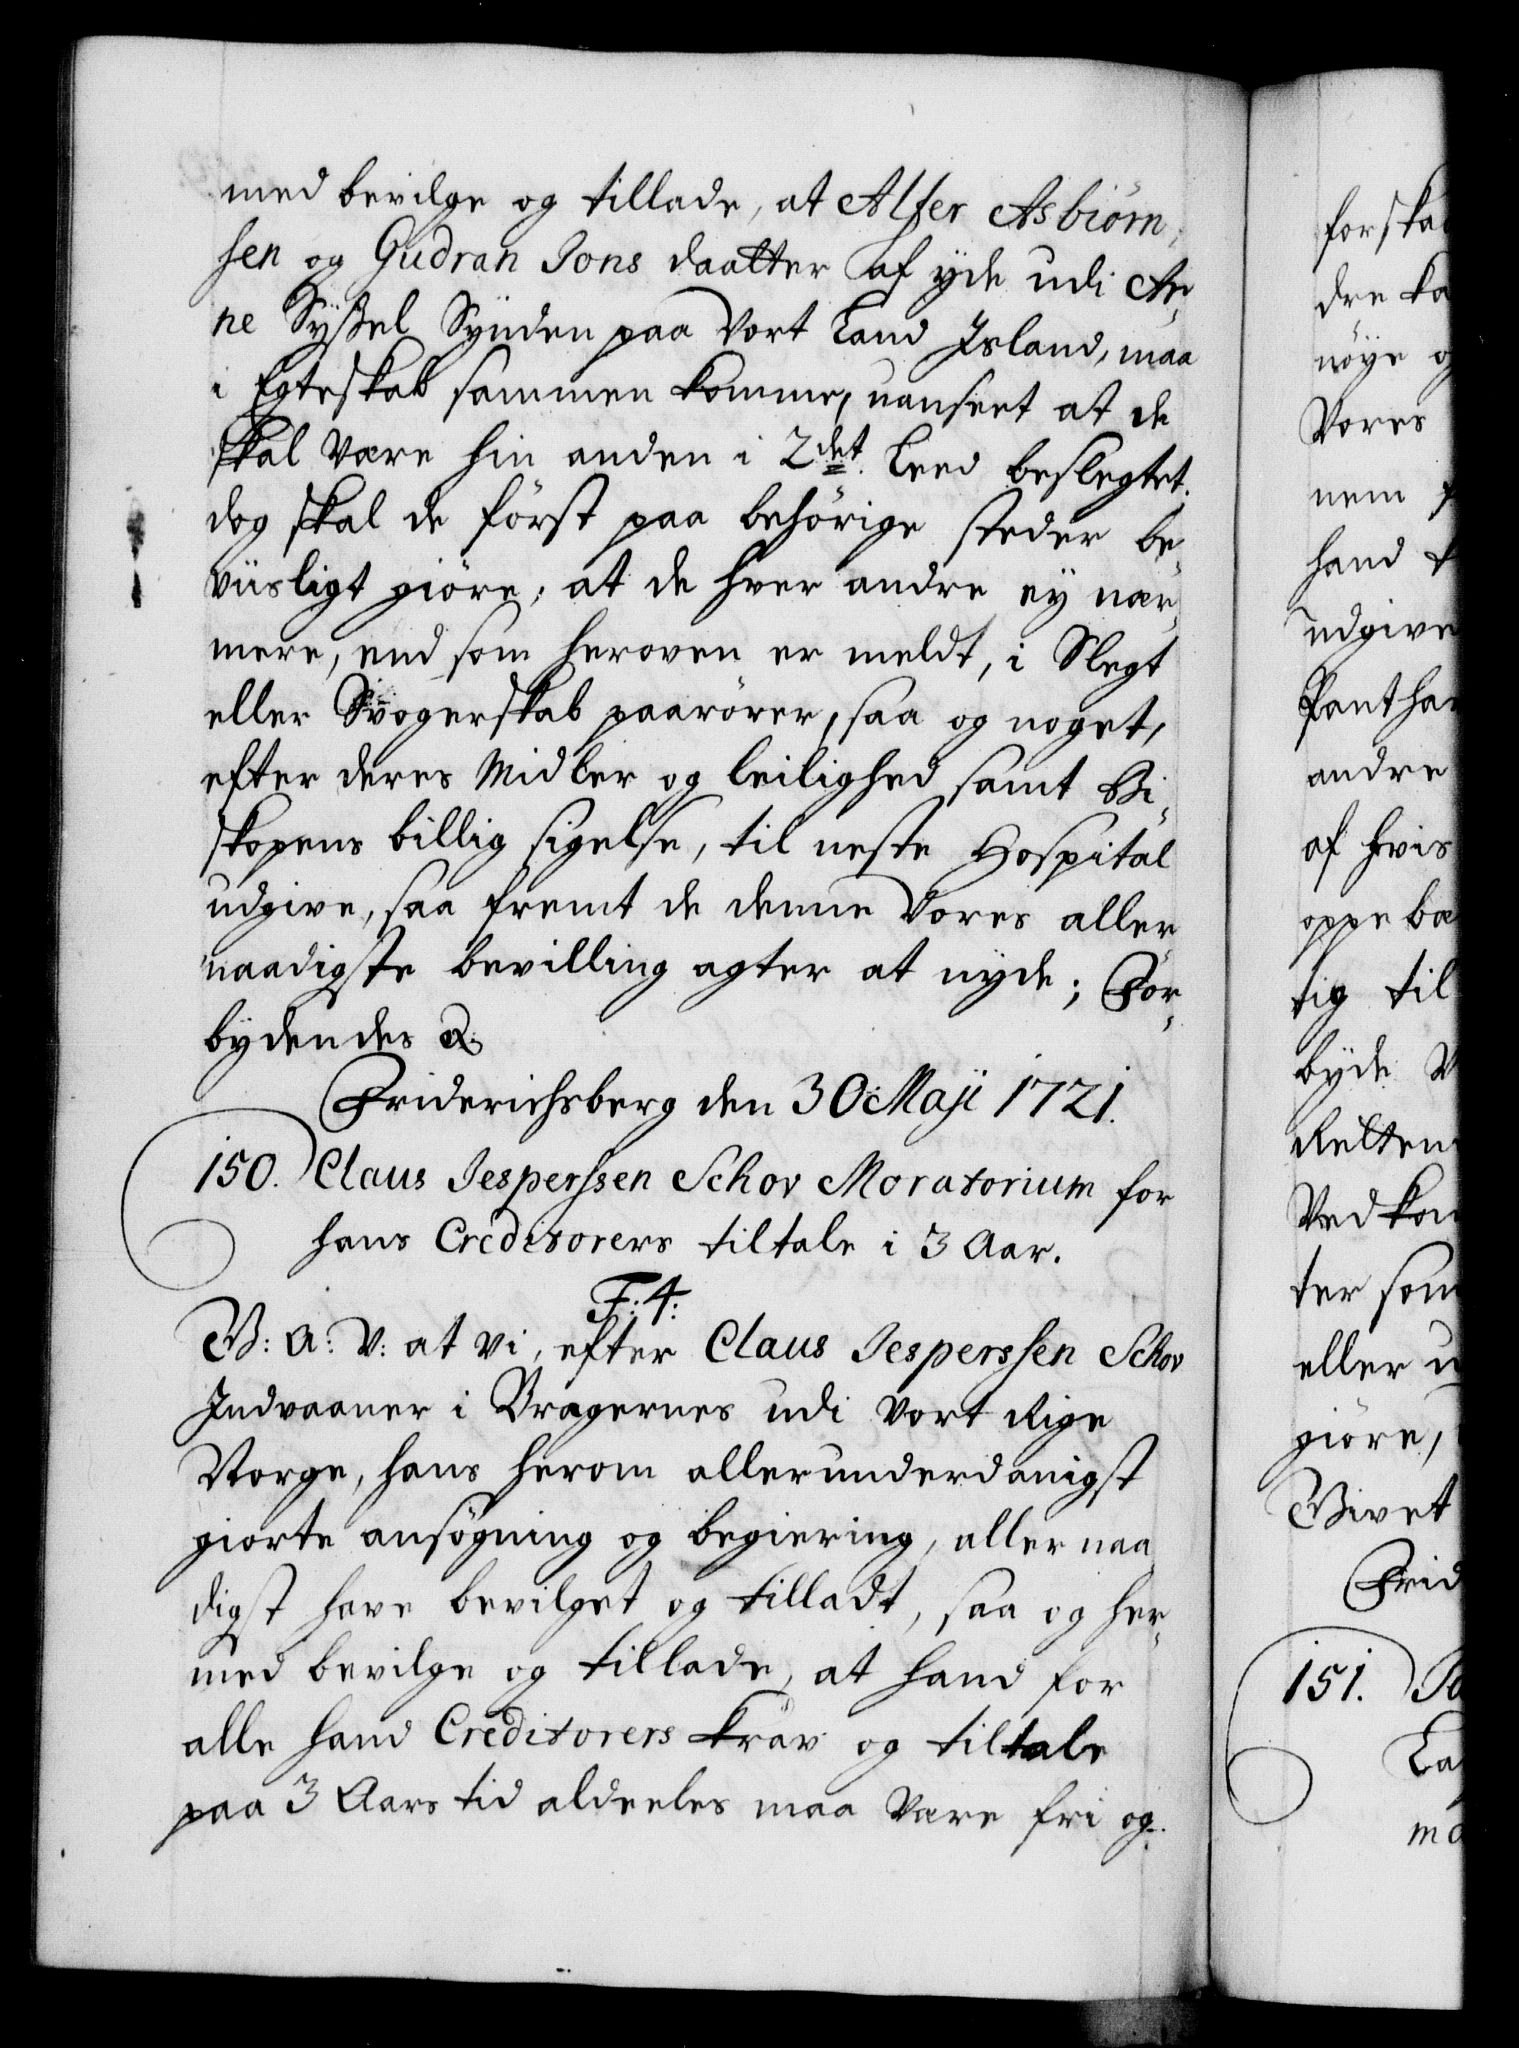 med bevilge og tillade, at Alfer Asbiörn,
sen og Gudran Jons daatter af yde udi Ar,
ne Sÿssel Synden paa Vort Land Island, maa
i Egteskab sammen komme, uanseet at de
skal være hin anden i 2det Leed beslegtet.
dog skal de först paa behörige steder be,
viisligt giöre, at de hver andre ey nær,
mere, end som heroven er meldt, i Slegt
eller Svogerskab paarörer, saa og noget,
efter deres Midler og leilighed samt Bi,
skopens billig sigelse, til neste Hospital
udgive, saa fremt de denne Vores aller
naadigste bevilling agter at nyde; For,
bydendes &.
Friderichsberg den 30 Maji 1721.
150. Claus Jesperssen Schov Moratorium for
hans Creditorers tiltale i 3 Aar.
F: 4:
G: A: V: at Vi, efter Claus Jesperssen Schov
Indvaaner i Bragernes udi Vort Rige
Norge, hans herom allerunderdanigst
giorte ansögning og begiering, aller naa
digst have bevilget og tilladt, saa og her,
med bevilge og tillade, at hand for
alle hand Creditorers krav og tiltale
paa 3 Aars tid aldeeles maa være fri og
forska
dre ka
nöye og
Vores
nem
hand
udgive
Pant ha
andre
af hvis
oppe bæ
tig til
byde V
Retten
Ved kom
ter som
eller u
giöre,
Givet
Frid
151. Po
La
ma